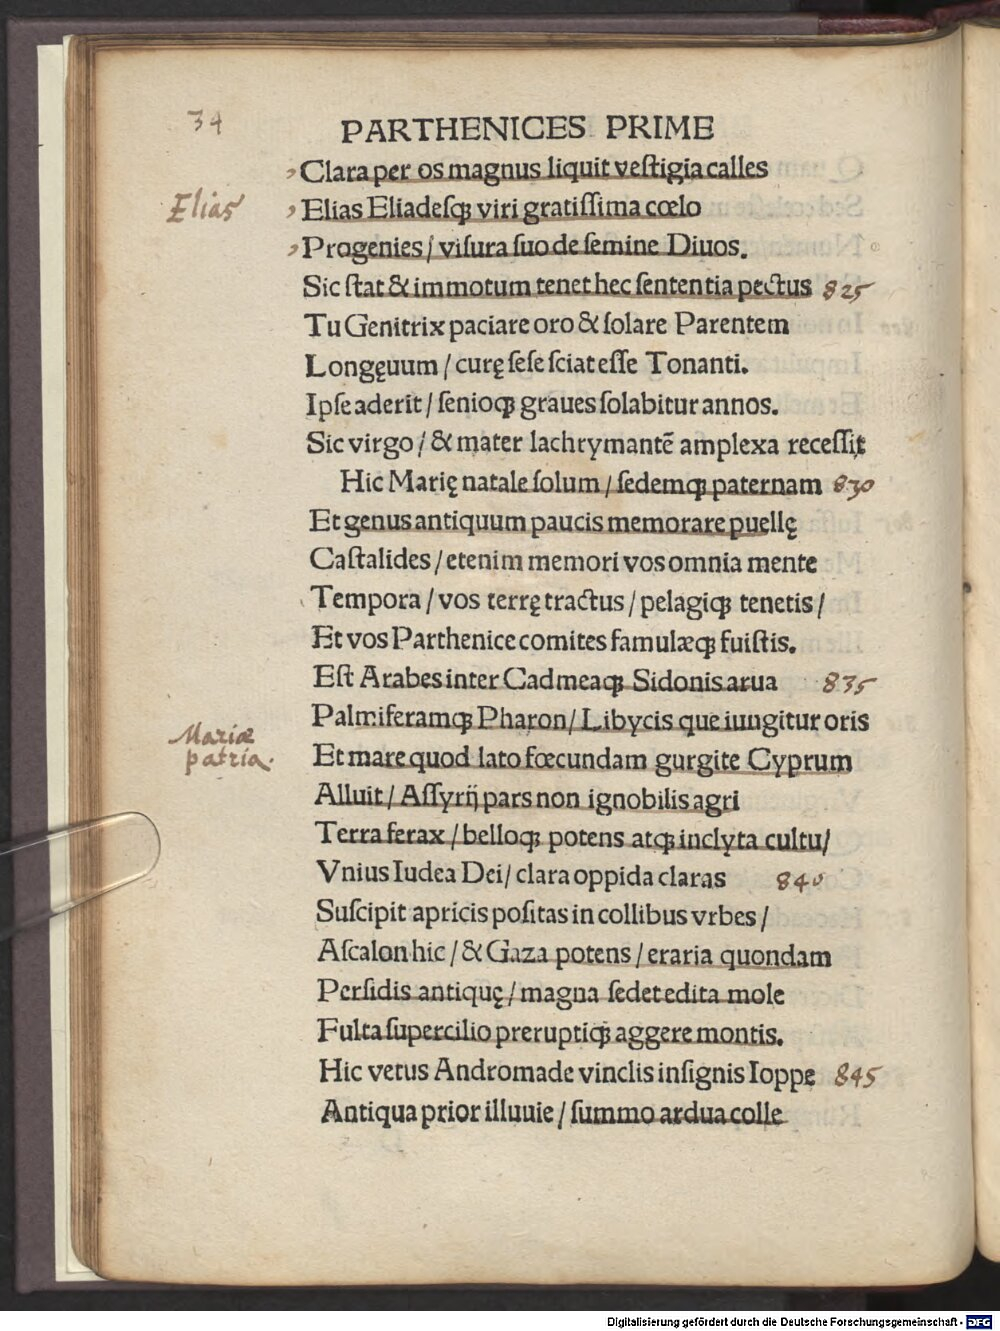 34
PARTHENICES PRIME
Clara per os magnus liquit veſtigia calles
Elias Elias Eliadeſqꝫ viri gratiſſima cœlo
Progenies / viſura ſuo de ſemine Diuos.
Sic ſtat & immotum tenet hec ſententia pectus 825
Tu Genitrix paciare oro & ſolare Parentem
Longęuum / curę ſeſe ſciat eſſe Tonanti.
Ipſe aderit / ſenioqꝫ graues ſolabitur annos.
Sic virgo / & mater lachrymantē amplexa receſſit
Hic Marię natale ſolum / ſedemqꝫ paternam 830
Et genus antiquum paucis memorare puellę
Caſtalides / etenim memori vos omnia mente
Tempora / vos terrę tractus / pelagiqꝫ tenetis /
Et vos Parthenice comites famulæqꝫ fuiſtis.
Eſt Arabes inter Cadmeaqꝫ Sidonis arua 835
Palmiferamqꝫ Pharon / Libycis que iungitur oris
Mariæ Et mare quod lato fœcundam gurgite Cyprum
patria. Alluit / Aſſyrij pars non ignobilis agri
Terra ferax / belloqꝫ potens atqꝫ inclyta cultu /
Vnius Iudea Dei / clara oppida claras 840
Suſcipit apricis poſitas in collibus vrbes /
Aſcalon hic / & Gaza potens / eraria quondam
Perſidis antiquę / magna ſedet edita mole
Fulta ſupercilio preruptiqꝫ aggere montis.
Hic vetus Andromade vinclis inſignis Ioppe 845
Antiqua prior illuuie / ſummo ardua colle
Digitalisierung gefördert durch die Deutsche Forschungsgemeinschaft - DFG